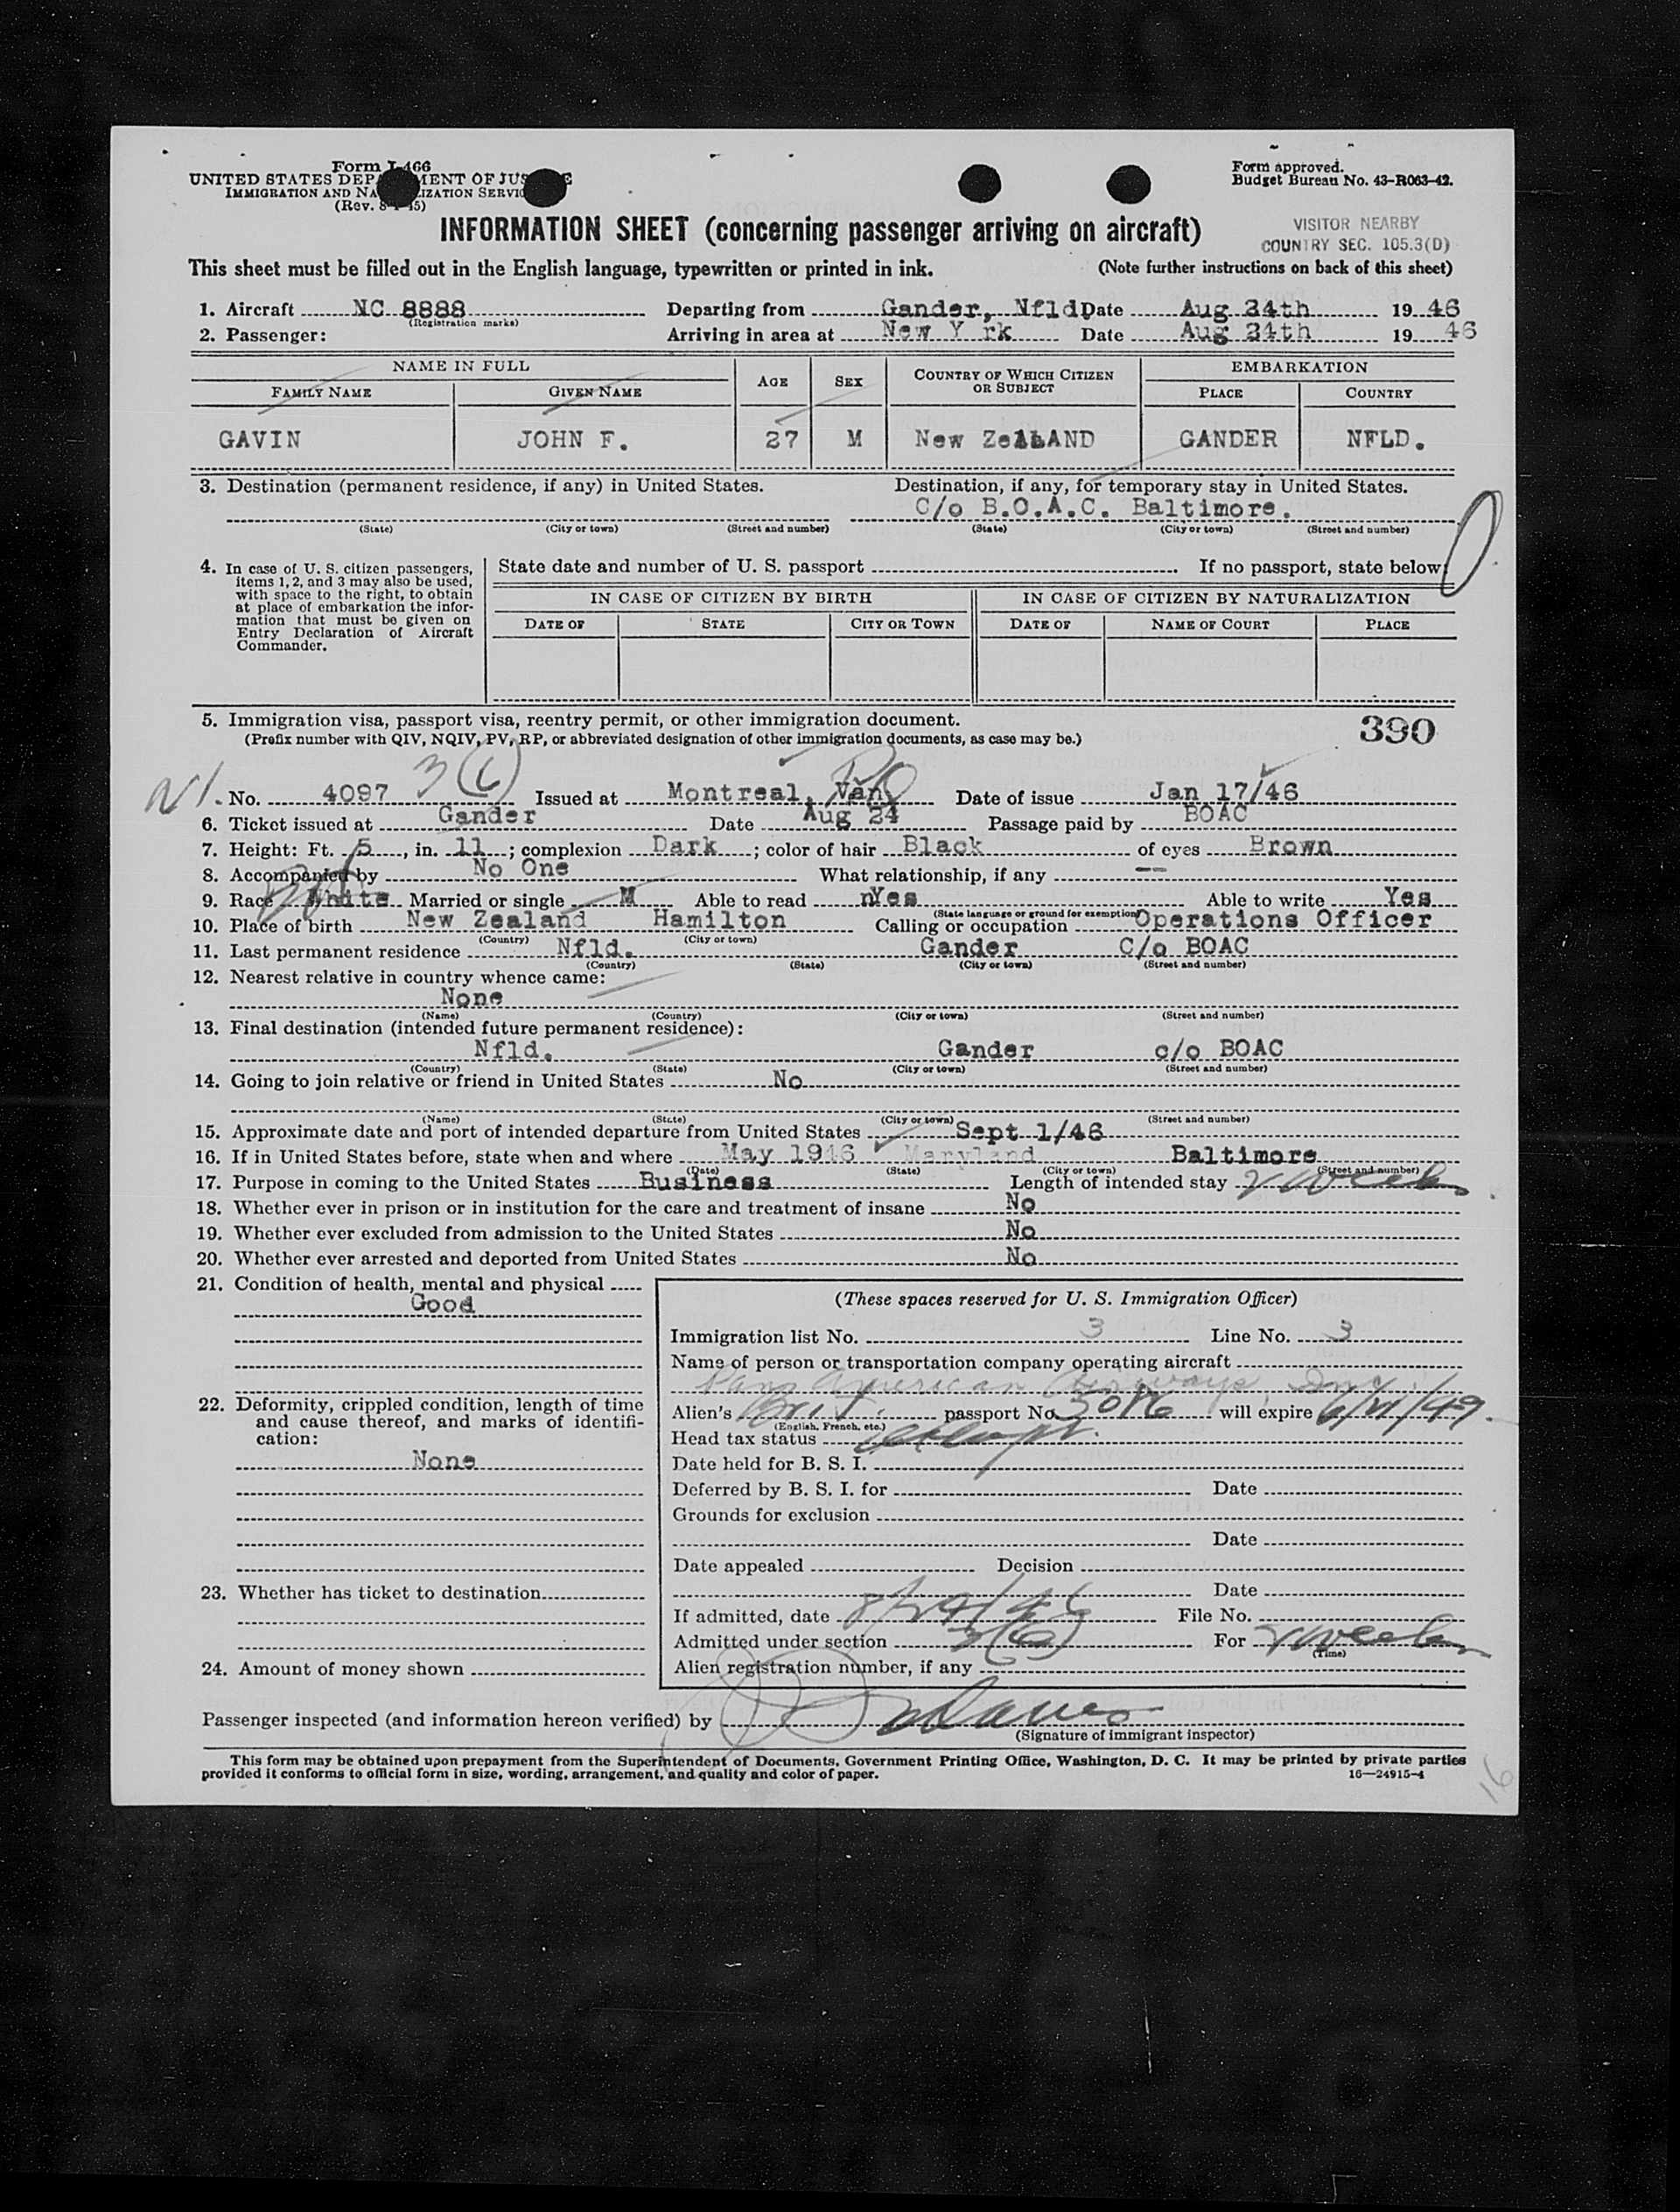 Form I-466
UNITED STATES DEP MENT OF JUS E
IMMIGRATION AND NA IZATION SERVIC
(Rev. 8 45)
Form approved.
Budget Bureau No. 43-R063-42.
INFORMATION SHEET (concerning passenger arriving on aircraft)
VISITOR NEARBY
COUNTRY SEC. 105.3(D)
This sheet must be filled out in the English language, typewritten or printed in ink. (Note further instructions on back of this sheet)
1. Aircraft NC 8888 Departing from Gander, Nfld Date Aug 24th 1946
(Registration marks)
2. Passenger: Arriving in area at New Y rk Date Aug 24th 19 46
NAME IN FULL AGE SEX COUNTRY OF WHICH CITIZEN OR SUBJECT EMBARKATION
FAMILY NAME GIVEN NAME PLACE COUNTRY
GAVIN JOHN F. 27 M New ZeaLAND GANDER NFLD.
3. Destination (permanent residence, if any) in United States. Destination, if any, for temporary stay in United States.
C/o B.O.A.C. Baltimore.
(State) (City or town) (Street and number) (State) (City or town) (Street and number)
4. In case of U. S. citizen passengers, items 1, 2, and 3 may also be used, with space to the right, to obtain at place of embarkation the information that must be given on Entry Declaration of Aircraft Commander.
State date and number of U. S. passport If no passport, state below:
IN CASE OF CITIZEN BY BIRTH IN CASE OF CITIZEN BY NATURALIZATION
DATE OF STATE CITY OR TOWN DATE OF NAME OF COURT PLACE
5. Immigration visa, passport visa, reentry permit, or other immigration document. 390
(Prefix number with QIV, NQIV, PV, RP, or abbreviated designation of other immigration documents, as case may be.)
No. 4097 3(6) Issued at Montreal, Date of issue Jan 17/46
6. Ticket issued at Gander Date Aug 24 Passage paid by BOAC
7. Height: Ft. 5, in. 11; complexion Dark; color of hair Black of eyes Brown
8. Accompanied by No One What relationship, if any --
9. Race White Married or single M Able to read Yes Able to write Yes
(State language or ground for exemption)
10. Place of birth New Zealand Hamilton Calling or occupation Operations Officer
(Country) (City or town)
11. Last permanent residence Nfld. Gander C/o BOAC
(Country) (State) (City or town) (Street and number)
12. Nearest relative in country whence came:
None
(Name) (Country) (City or town) (Street and number)
13. Final destination (intended future permanent residence):
Nfld. Gander c/o BOAC
(Country) (State) (City or town) (Street and number)
14. Going to join relative or friend in United States No
(Name) (State) (City or town) (Street and number)
15. Approximate date and port of intended departure from United States Sept 1/46
16. If in United States before, state when and where May 1946 Maryland Baltimore
(Date) (State) (City or town) (Street and number)
17. Purpose in coming to the United States Business Length of intended stay 2 weeks
18. Whether ever in prison or in institution for the care and treatment of insane No
19. Whether ever excluded from admission to the United States No
20. Whether ever arrested and deported from United States No
21. Condition of health, mental and physical
Good
22. Deformity, crippled condition, length of time and cause thereof, and marks of identification:
None
23. Whether has ticket to destination
24. Amount of money shown
(These spaces reserved for U. S. Immigration Officer)
Immigration list No. 3 Line No. 3
Name of person or transportation company operating aircraft
Pan American Airways, Inc.
Alien's Brit. passport No. 5086 will expire
(English, French, etc.)
Head tax status exempt.
Date held for B. S. I.
Deferred by B. S. I. for Date
Grounds for exclusion
Date
Date appealed Decision
Date
If admitted, date 8/24/46 File No.
Admitted under section 3(6) For 2 weeks
(Time)
Alien registration number, if any
Passenger inspected (and information hereon verified) by
(Signature of immigrant inspector)
This form may be obtained upon prepayment from the Superintendent of Documents, Government Printing Office, Washington, D. C. It may be printed by private parties
provided it conforms to official form in size, wording, arrangement, and quality and color of paper. 16—24915-4
16